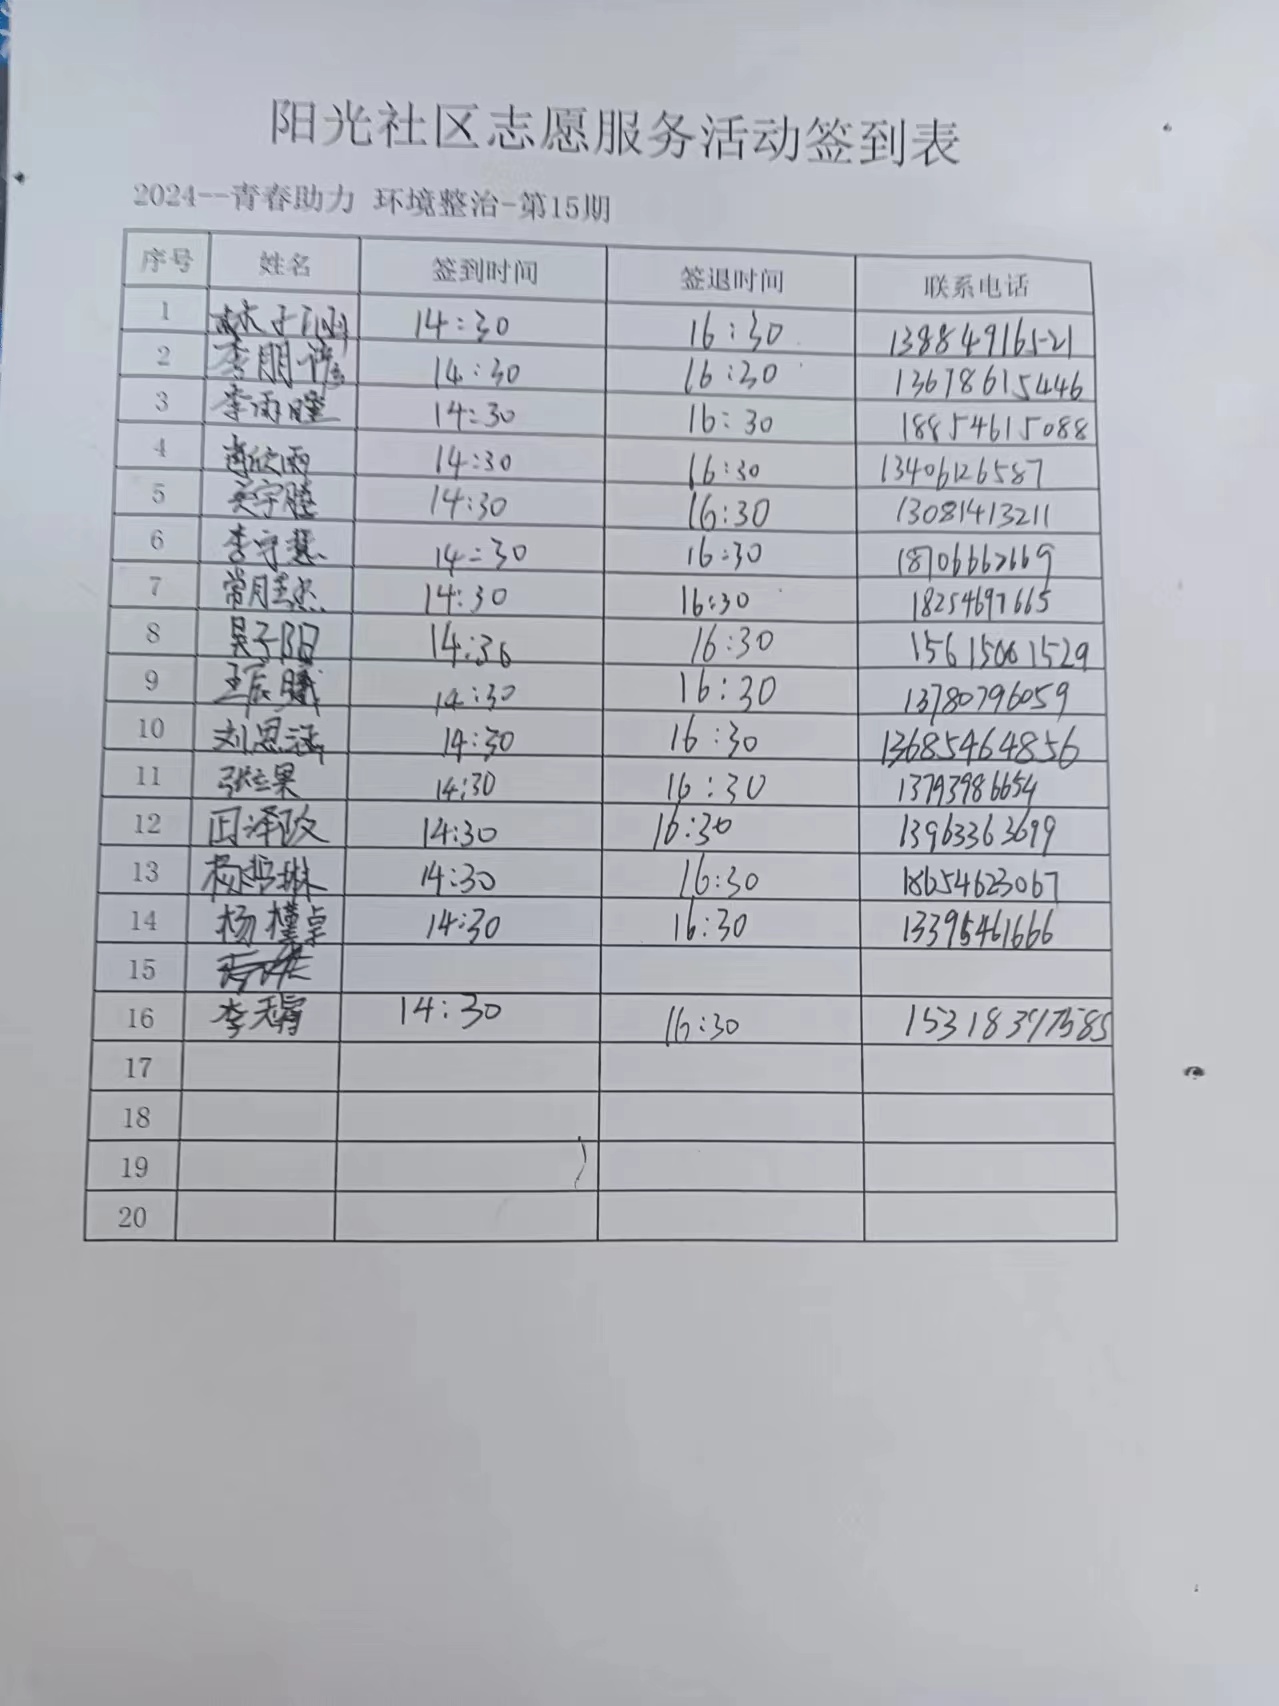 阳光社区志愿服务活动签到表
2024--青春助力 环境整治-第15期
序号 姓名 签到时间 签退时间 联系电话
1 林子涵 14:30 16:30 13884916521
2 李朋 14:30 16:30 13678615446
3 李雨瞳 14:30 16:30 18854615088
4 欣雨 14:30 16:30 13406126587
5 14:30 16:30 13081413211
6 李守慧 14:30 16:30
7 常月 14:30 16:30 18254697665
8 吴子阳 14:30 16:30 15615061529
9 王辰曦 14:30 16:30 13780796059
10 刘思涵 14:30 16:30 13685464856
11 张立果 14:30 16:30 13793986654
12 田泽政 14:30 16:30 13963363699
13 杨哲琳 14:30 16:30 18654623067
14 杨槿卓 14:30 16:30 13395461666
15
16 李天 14:30 16:30
17
18
19
20